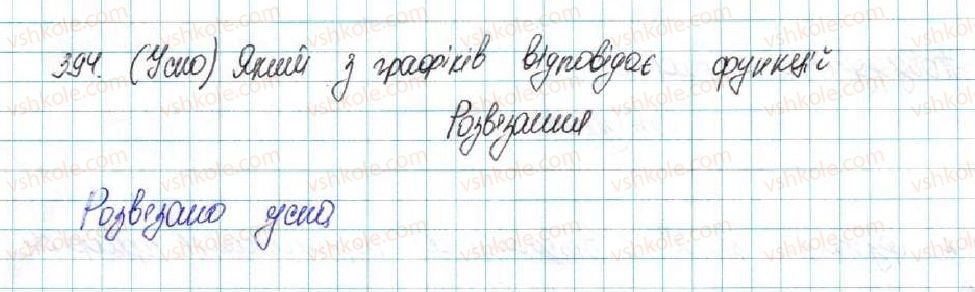 394. (Усно) Який з графіків відповідає функції
Розв'язання
Розв'язано усно